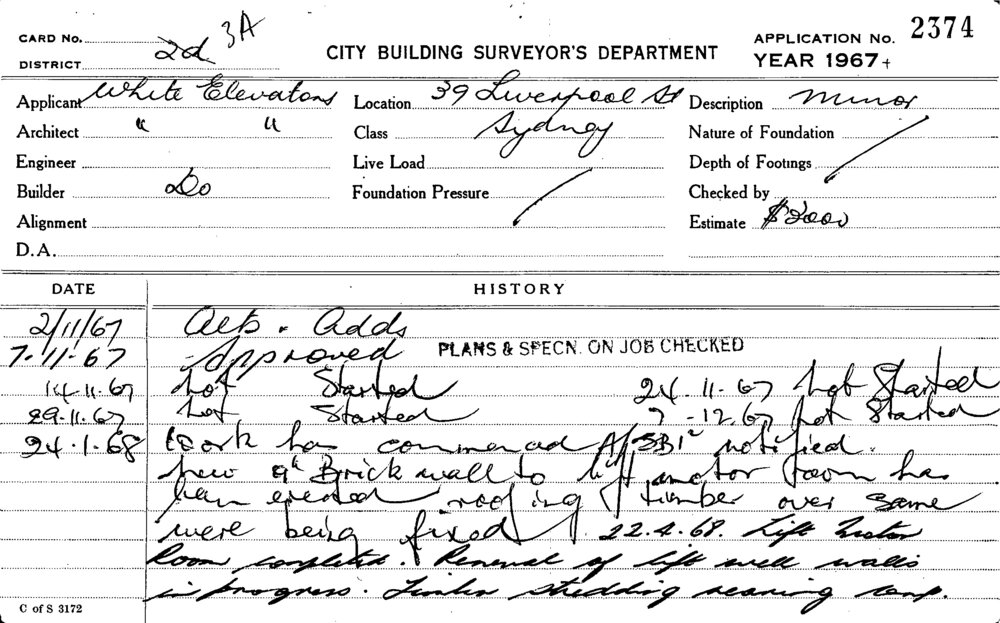 CARD No. 2d 3A
DISTRICT
CITY BUILDING SURVEYOR'S DEPARTMENT
APPLICATION No. 2374
YEAR 1967+
Applicant White Elevators Location 39 Liverpool St Description Minor
Architect " " Class Sydney Nature of Foundation
Engineer Live Load Depth of Footings
Builder Do Foundation Pressure Checked by
Alignment Estimate $2000
D.A.
DATE HISTORY
2/11/67 Alts & Adds
7-11-67 Approved PLANS & SPECN. ON JOB CHECKED
14-11-67 Not Started 24-11-67 Not Started
29-11-67 Not Started 7-12-67 Not Started
24-1-68 Work has commenced notified.
New 9" Brick wall to lift motor room has
been erected roofing timber over same
were being fixed 22.4.68. Lift Motor
Room completed. Renewal of lift well walls
in progress. Timber studding nearing comp.
C of S 3172